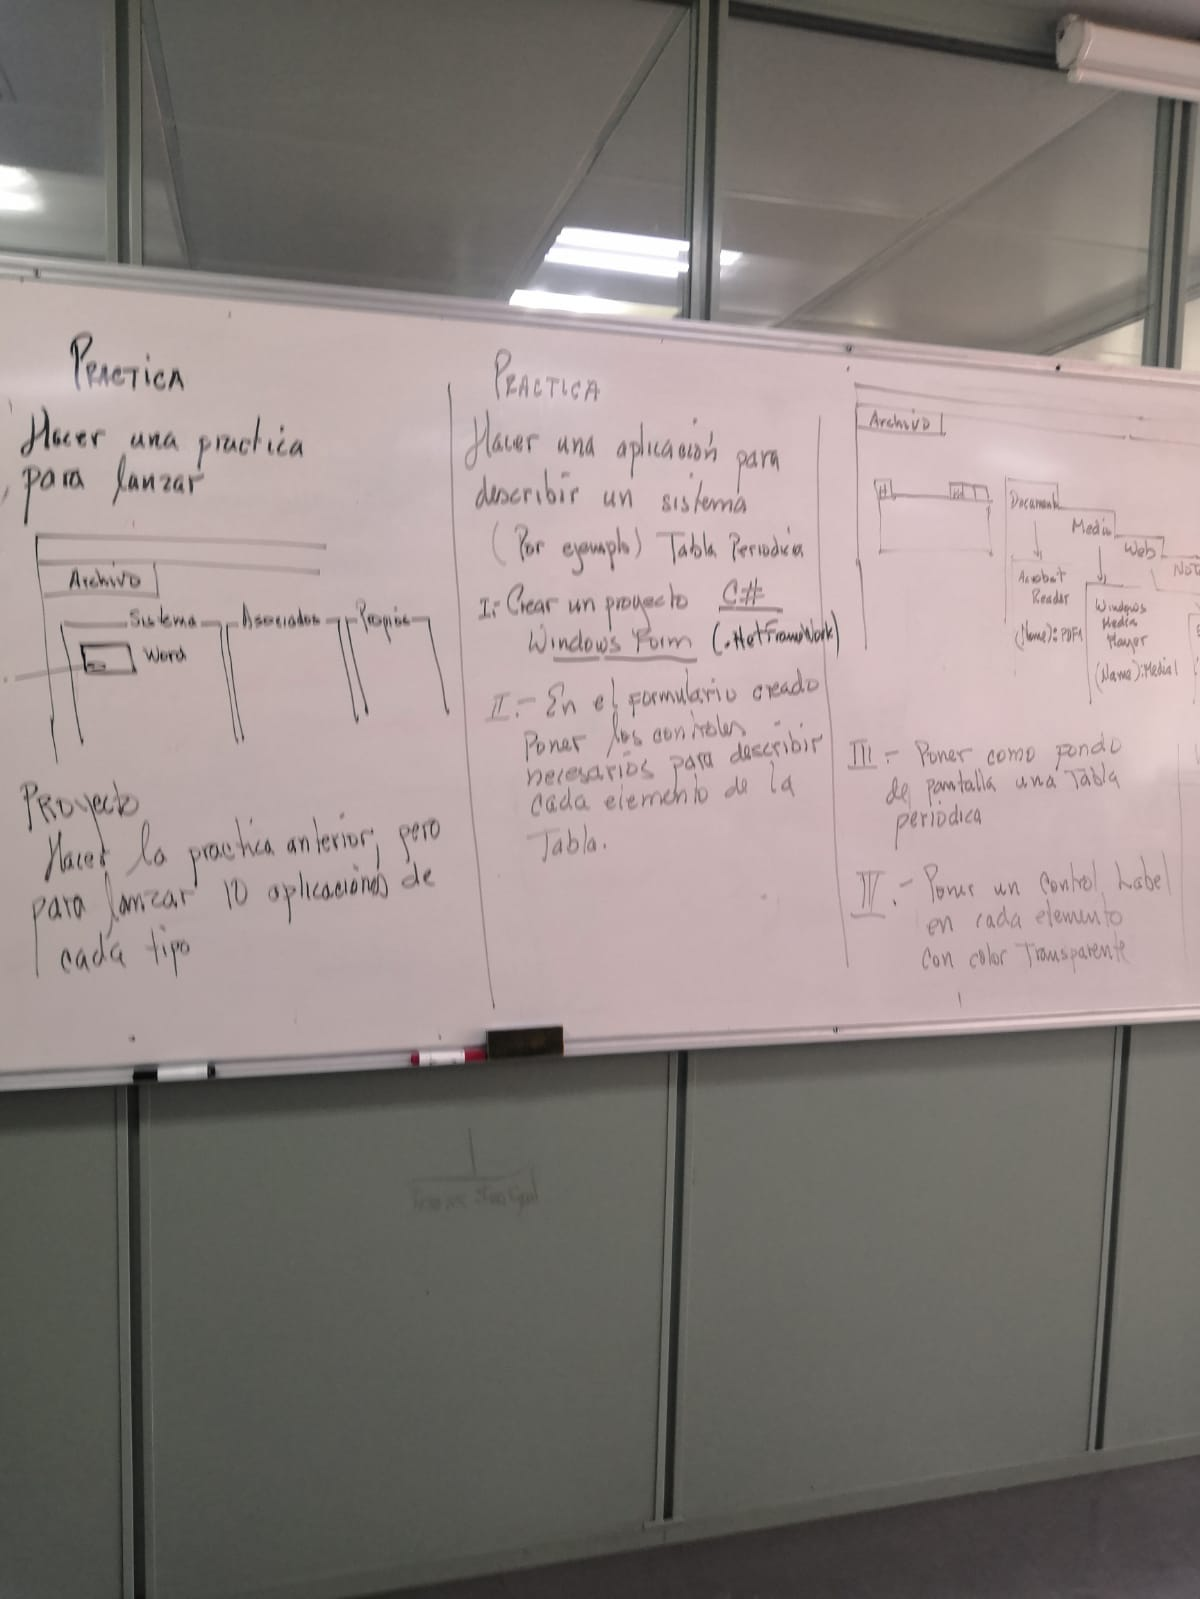 PRACTICA
Hacer una practica
para lanzar
Archivo
Sistema
Asociados
Propios
Word
Proyecto
Hacer la practica anterior, pero
para lanzar 10 aplicaciones de
cada tipo
PRACTICA
Hacer una aplicación para
describir un sistema
(Por ejemplo) Tabla Periodica
I.- Crear un proyecto C#
Windows Form (.NetFrameWork)
II.- En el formulario creado
Poner los controles
necesarios para describir
cada elemento de la
Tabla.
Archivo
Document
Media
Web
Acrobat
Reader
(Name): PDF1
Windows
Media
Player
(Name): Media1
III.- Poner como fondo
de pantalla una Tabla
periodica
IV.- Poner un Control Label
en cada elemento
con color Transparente